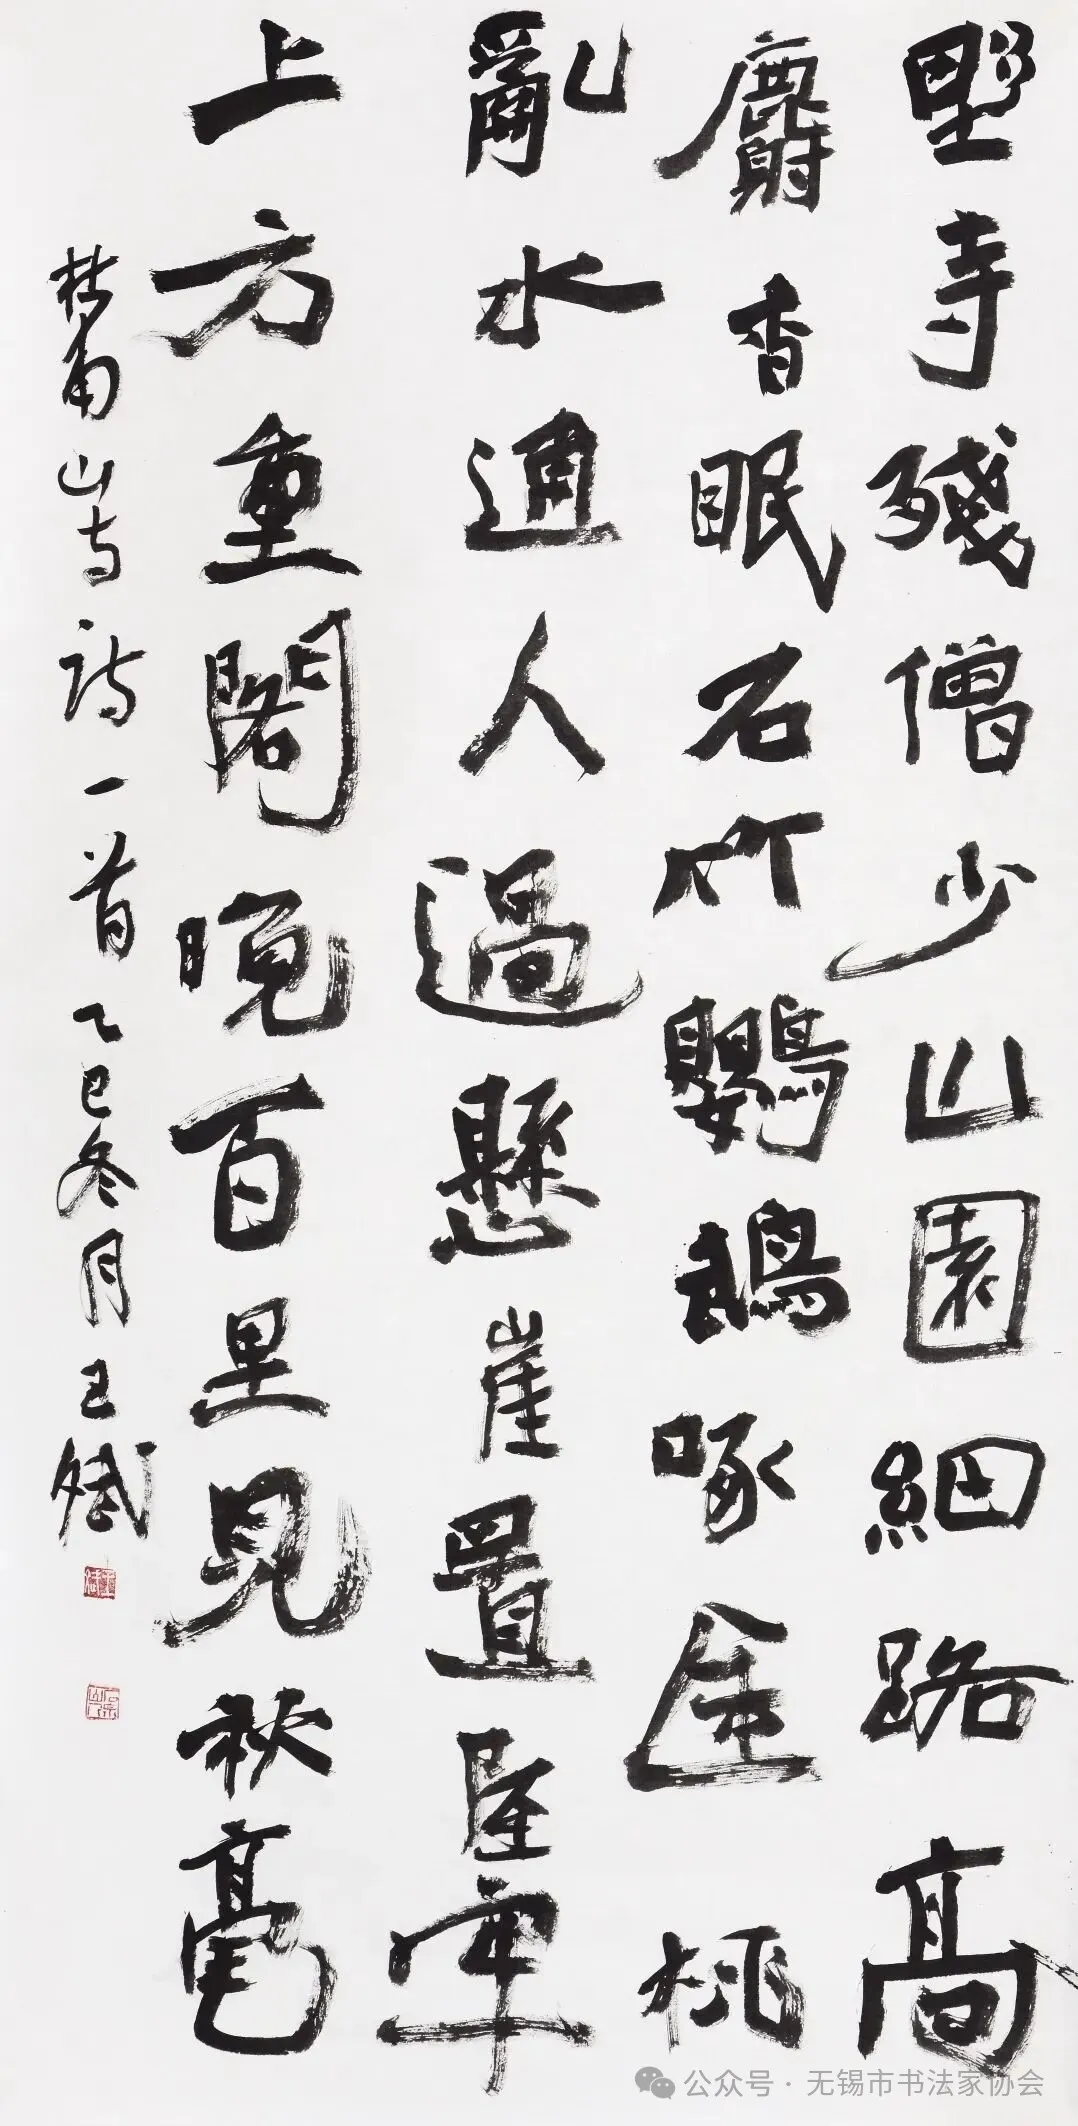 野寺殘僧少山園細路高
麝香眠石竹鸚鵡啄金桃
亂水通人過懸崖置屋牢
上方重閣晚百里見秋毫
杜甫山寺詩一首乙巳冬月王斌
公众号·无锡市书法家协会